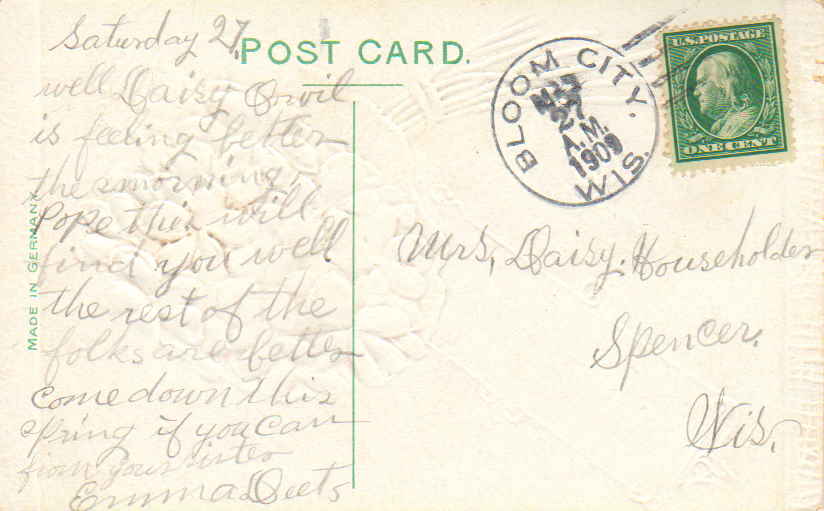 Saturday 27,
POST CARD.
well Daisy Orvil
is feeling better
the smorning,
Pope this will
find you well
the rest of the
folks are better
come down this
spring if you can
from your sister
Emma Deets
MADE IN GERMANY
BLOOM CITY,
WIS.
27
A.M.
1909
U.S. POSTAGE
ONE CENT
Mrs, Daisy. Householder
Spencer.
Wis.